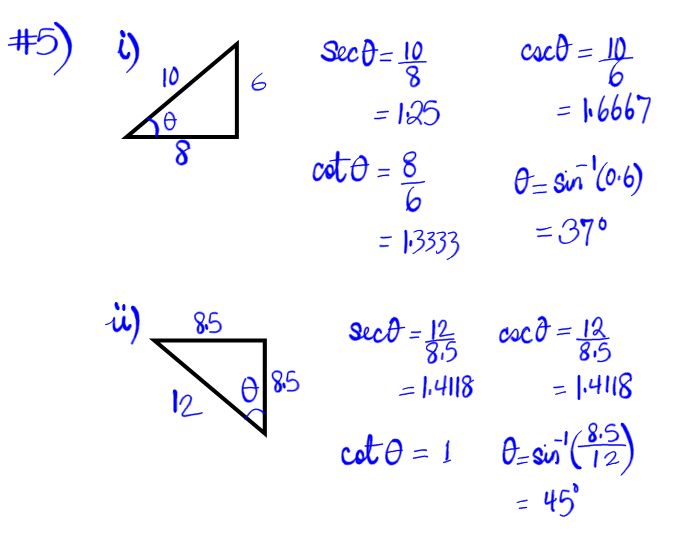 #5) i)
10
6
θ
8
secθ = 10/8
= 1.25
cscθ = 10/6
= 1.6667
cotθ = 8/6
= 1.3333
θ = sin⁻¹(0.6)
= 37°
ii)
8.5
8.5
θ
12
secθ = 12/8.5
= 1.4118
cscθ = 12/8.5
= 1.4118
cotθ = 1
θ = sin⁻¹(8.5/12)
= 45°